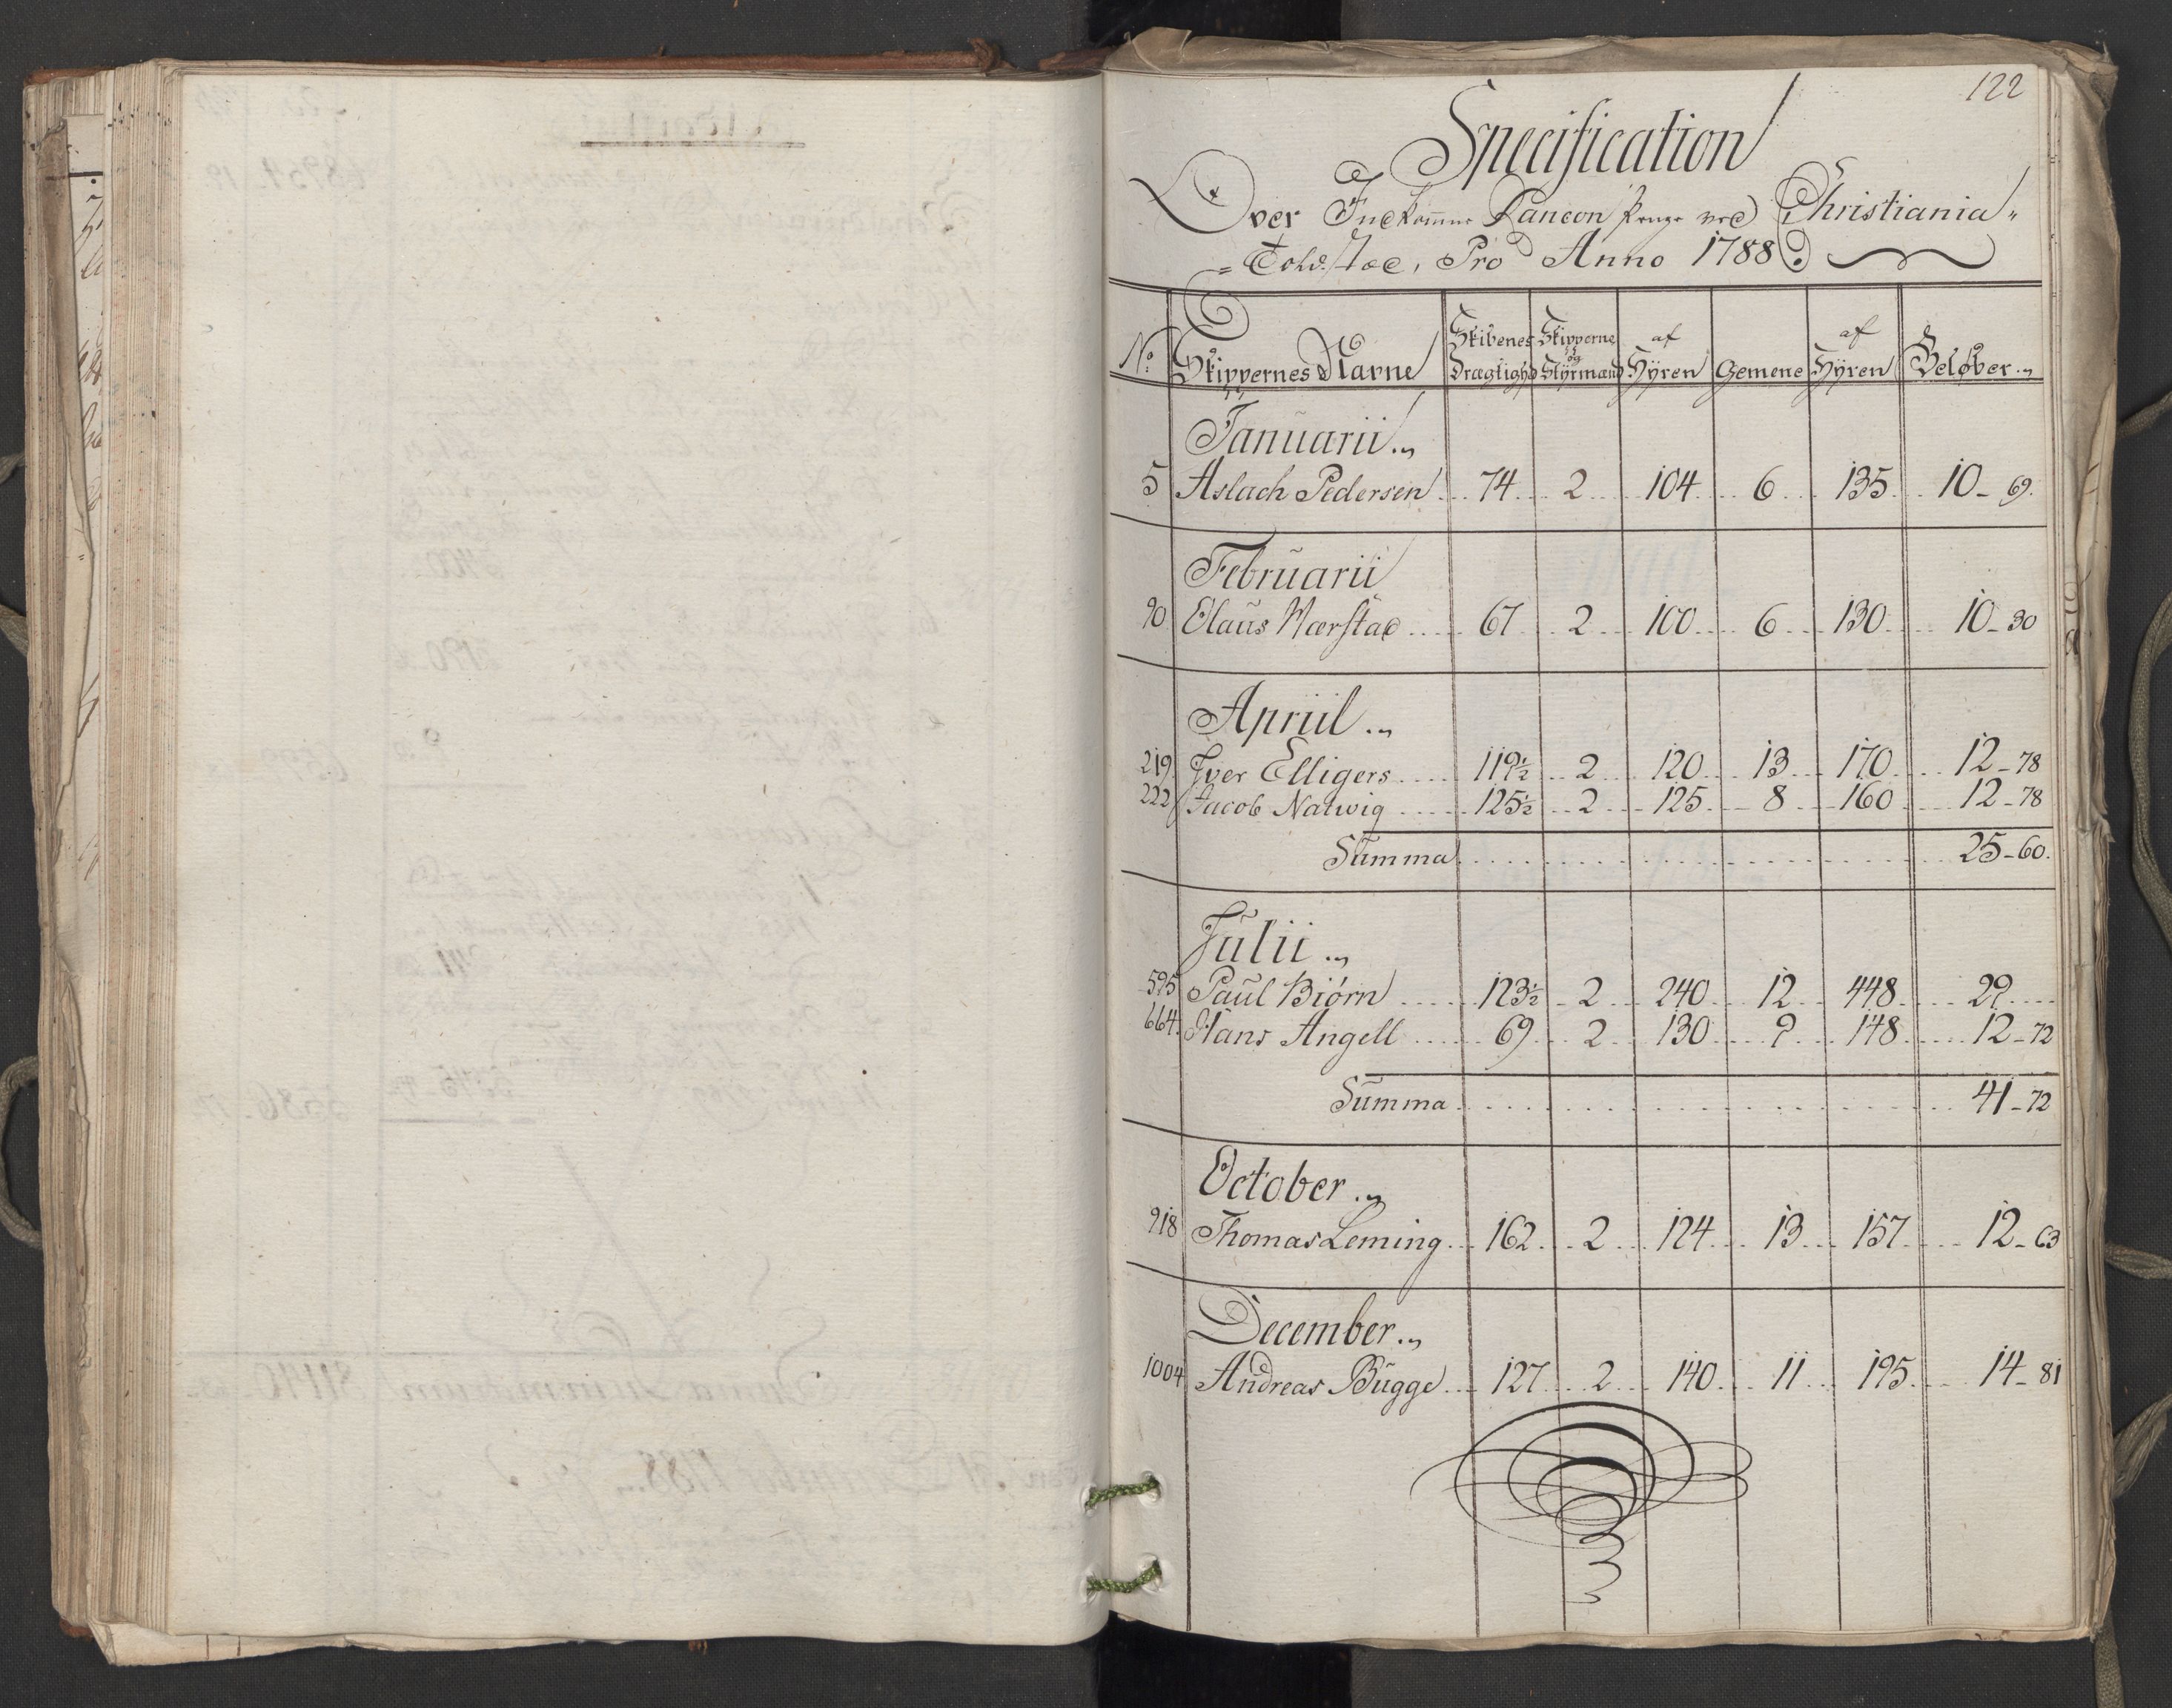 122
Specification
Over Indkomne Rancon Penge ved Christiania
Told-Stæd, Pro Anno 1788
No. Skippernes Navne Skibenes Drægtighd Skipperne og Styrmænd af Hÿren Gemene af Hÿren Beløber
Januarii
5 Aslach Pedersen 74 2 104 6 135 10 - 69
Februarii
90 Olaus Værstad 67 2 100 6 130 10 - 30
Apriil
219 Iver Elligers 119½ 2 120 13 170 12 - 78
222 Jacob Natwig 125½ 2 125 8 160 12 - 78
Summa 25 - 60
Julii
595 Paul Biørn 123½ 2 240 12 448 29
664 Hans Angell 69 2 130 9 148 12 - 72
Summa 41 - 72
October
918 Thomas Leming 162 2 124 13 157 12 - 63
December
1004 Andreas Bugge 127 2 140 11 195 14 - 81